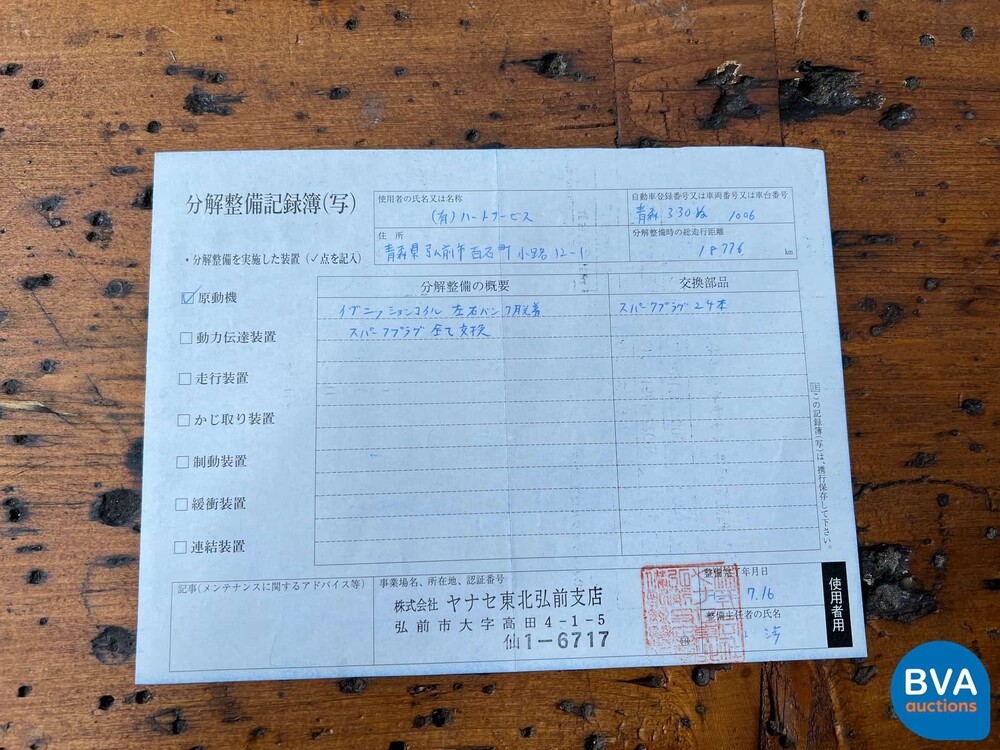 分解整備記録簿(写)
使用者の氏名又は名称
(有)ハートサービス
自動車登録番号又は車両番号又は車台番号
青森 330 ぬ 1006
住所
青森県弘前市百石町小路12-1
分解整備時の総走行距離
18776 km
・分解整備を実施した装置(✓点を記入)
☑原動機
□動力伝達装置
□走行装置
□かじ取り装置
□制動装置
□緩衝装置
□連結装置
分解整備の概要
交換部品
イグニッションコイル 左右バンク脱着
スパークプラグ 24本
スパークプラグ 全て交換
注この記録簿(写)は、携行保存して下さい。
記事(メンテナンスに関するアドバイス等)
事業場名、所在地、認証番号
株式会社 ヤナセ東北弘前支店
弘前市大字高田4-1-5
仙1-6717
年月日
7.16
整備主任者の氏名
使用者用
BVA
auctions